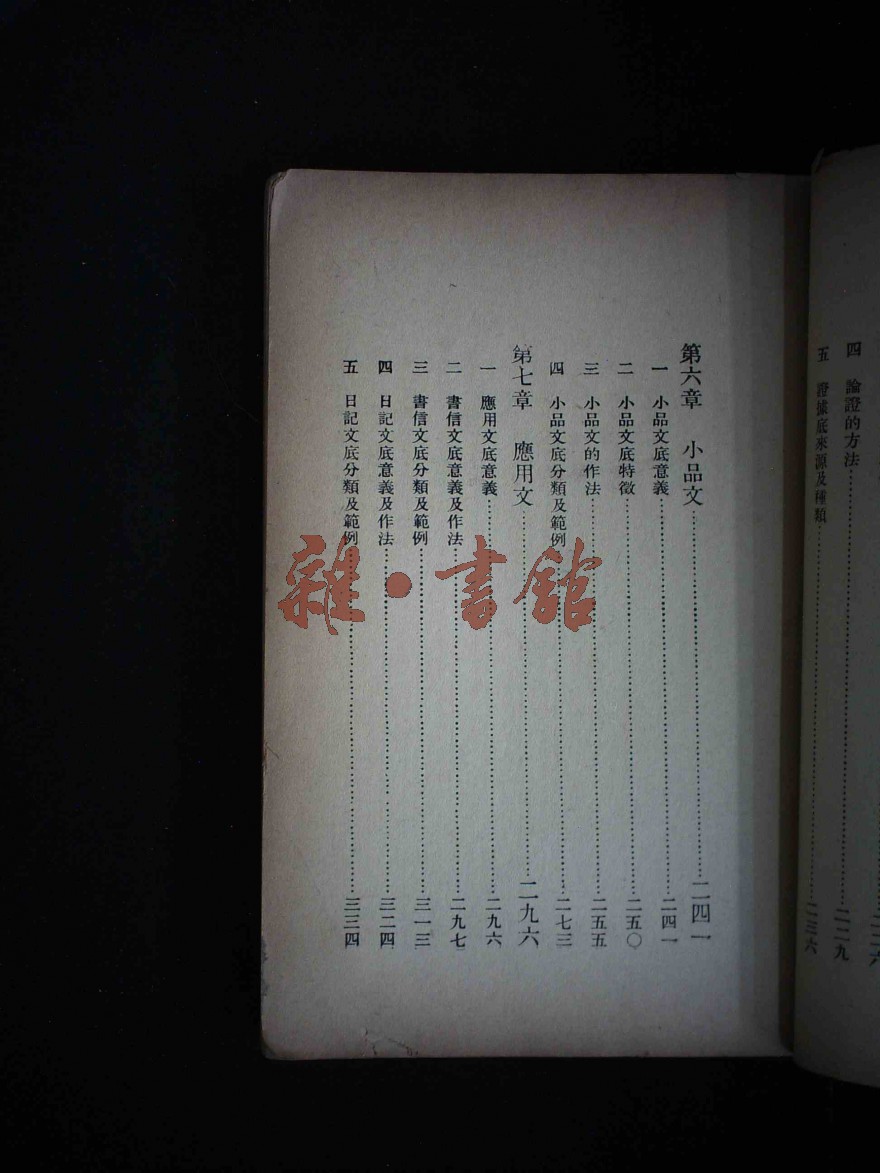 四　論證的方法……二二九
五　證據底來源及種類……二三六
第六章　小品文……二四一
一　小品文底意義……二四一
二　小品文底特徵……二五〇
三　小品文的作法……二五五
四　小品文底分類及範例……二七三
第七章　應用文……二九六
一　應用文底意義……二九六
二　書信文底意義及作法……二九七
三　書信文底分類及範例……三一三
四　日記文底意義及作法……三二四
五　日記文底分類及範例……三三四
雜·書館